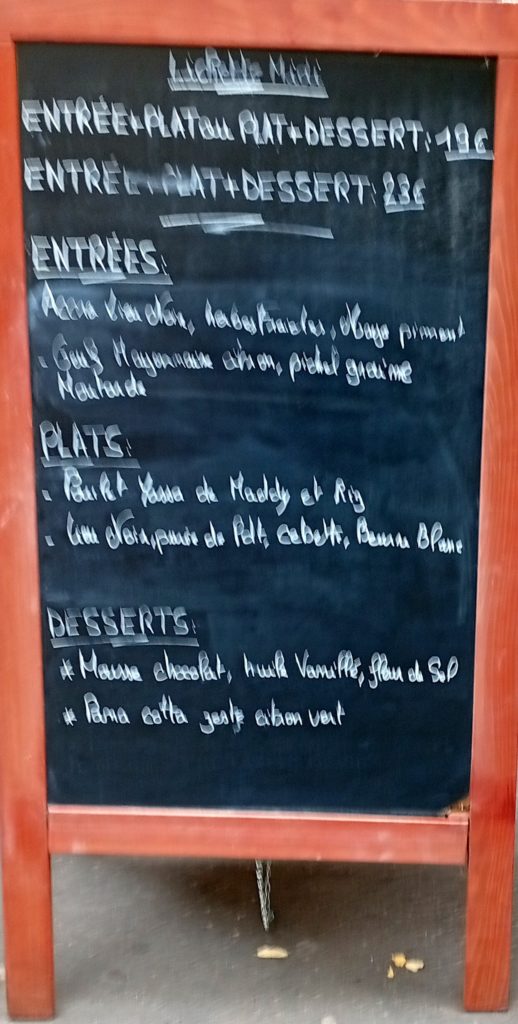 Midi
ENTRÉE+PLAT ou PLAT+DESSERT: 19€
ENTRÉE+PLAT+DESSERT: 23€
ENTRÉES:
Accra Lieu Noir, piment
. Oeuf Mayonnaise citron, pickel graine
Moutarde
PLATS:
. Poulet Yassa de Maddy et Riz
. Lieu Noir, purée de Pdt, cebette, Beurre Blanc
DESSERTS:
* Mousse chocolat, huile Vanille, fleur de Sel
* Pana cotta zeste citron vert